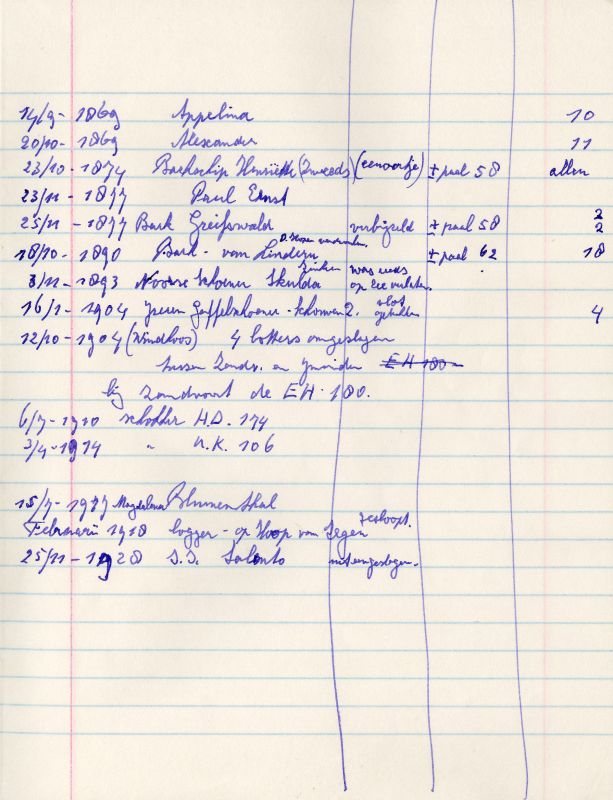 14/9 - 1869 Appelina 10
20/10 - 1869 Alexander 11
23/10 - 1874 Barkschip Henriëtte (Zweeds) (eenoortje) ± paal 58 allen
23/11 - 1877 Paul Ernst
25/11 - 1877 Bark Greifswald verbrijzeld ± paal 58 2 2
18/10 - 1890 Bark - van Lindern ± paal 62 18
3/11 - 1893 Noorse schoener Skulda was reeds op zee verlaten.
16/1 - 1904 ijzeren Gaffelschoener - schouwen 2. vlot 4
12/10 - 1904 (Windloos) 4 botters omgeslagen
tussen Zandv. en Ymuiden EH 180
bij Zandvoort de EH - 180.
6/7 - 1910 schokker H.D. 174
3/4 - 1914 " U.K. 106
15/7 - 1977 Magdalena Blumenthal
Februarii 1918 logger - op Hoop van Zegen gesloopt.
25/11 - 1928 S.S. Salento uiteengeslagen.